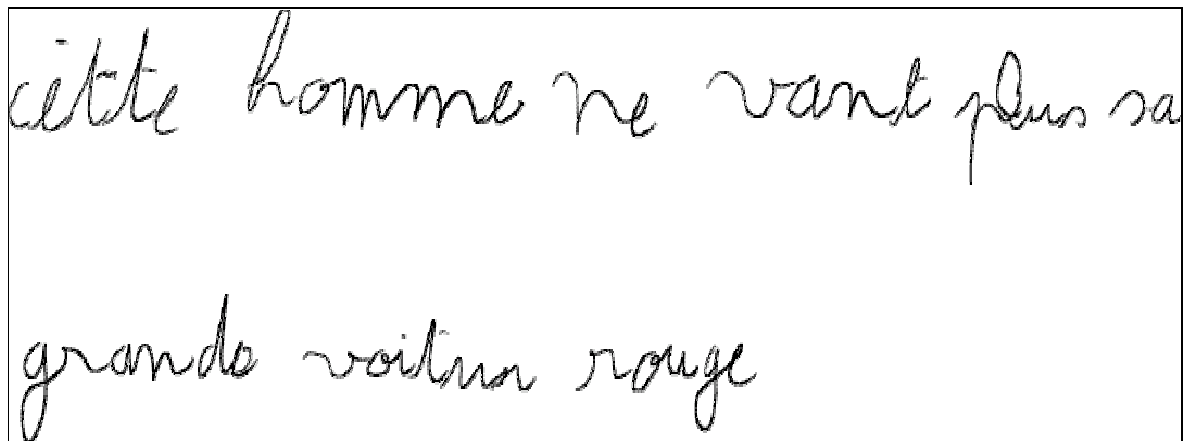 cette homme ne vant plus sa
grande voiture rouge